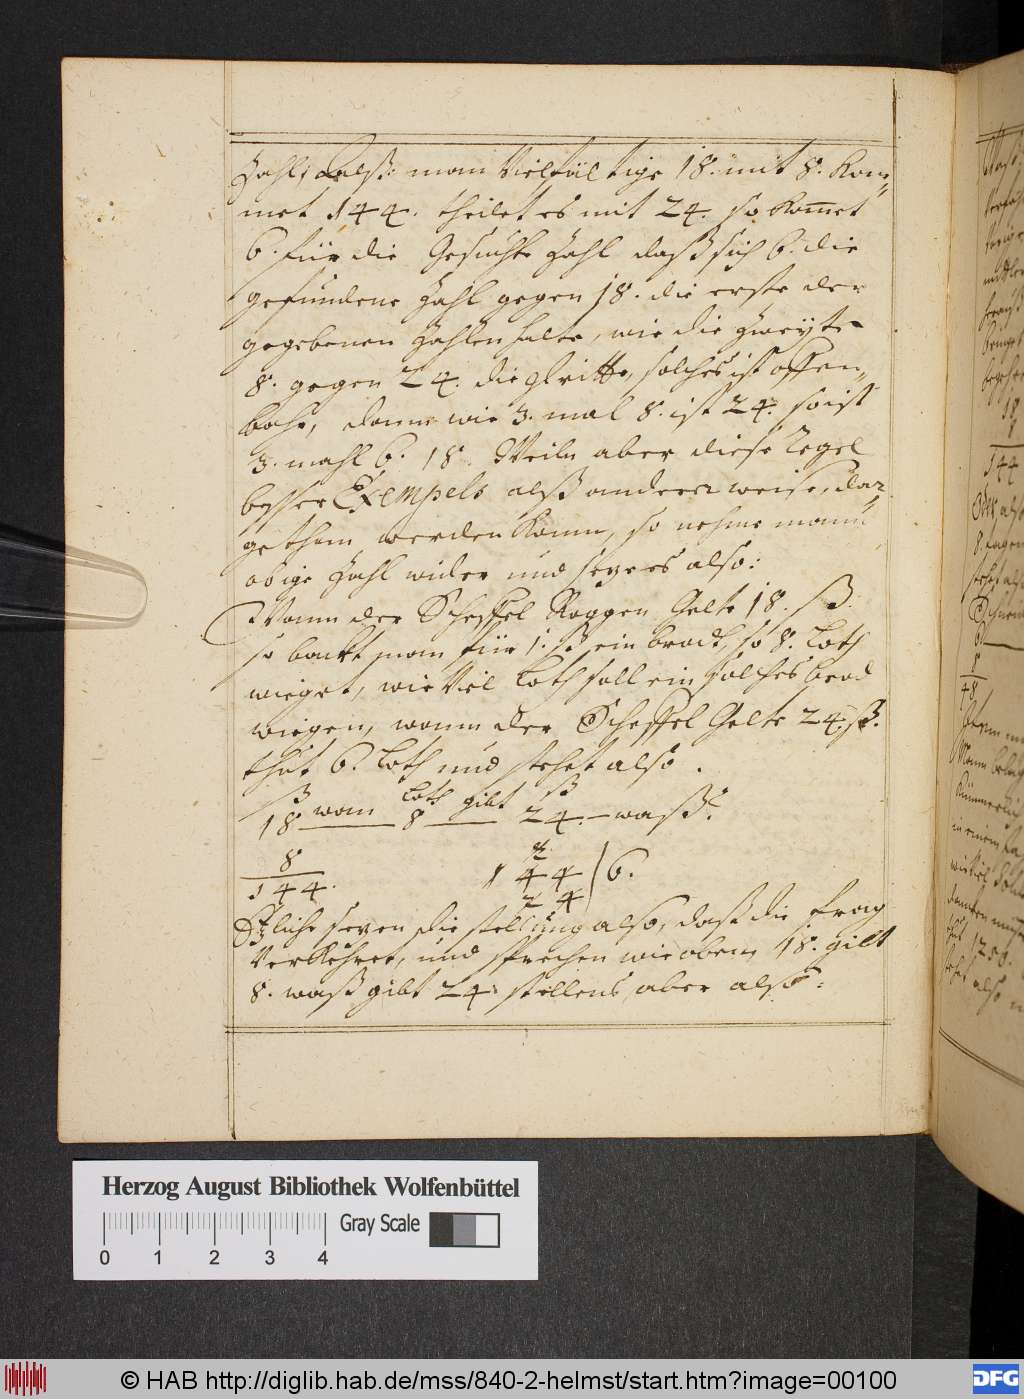 Zahl, alß: man Vielfältige 18. mit 8. Kom„
met 144. theilet es mit 24. so kom̅et
6. für die Gesuchte Zahl daß sich 6. die
gefundene Zahl gegen 18. die erste der
gegebenen Zahlen halte, wie die Zweÿte
8. gegen 24. die dritte, solches ist offen„
bahr, dann wie 3. mal 8. ist 24. so ist
3. mahl 6. 18. Weiln aber diese Regel
besser Exempels alß anderer weise, dar„
gethan werden kann, so nehme man
obige Zahl wider und setze es also:
Wann der Scheffel Roggen Gelte 18. ß.
so backt man für 1. ß ein brodt, so 8. Loth
wieget, wie Viel Loth soll ein solches brod
wiegen, wann der Scheffel Gelte 24. ß.
thut 6. Loth und stehet also.
ß wann Loth gibt ß
18 8 24. waß?
8
144.
2
1 4 4 / 6.
2 4
Etliche setzen die stellung also, daß die frag
Verkehret, und sprechen wie oben, 18. gilt
8. waß gibt 24. stellens aber also:
18
144
8. sagen
1250.
also
Herzog August Bibliothek Wolfenbüttel
Gray Scale
0 1 2 3 4
© HAB http://diglib.hab.de/mss/840-2-helmst/start.htm?image=00100
DFG